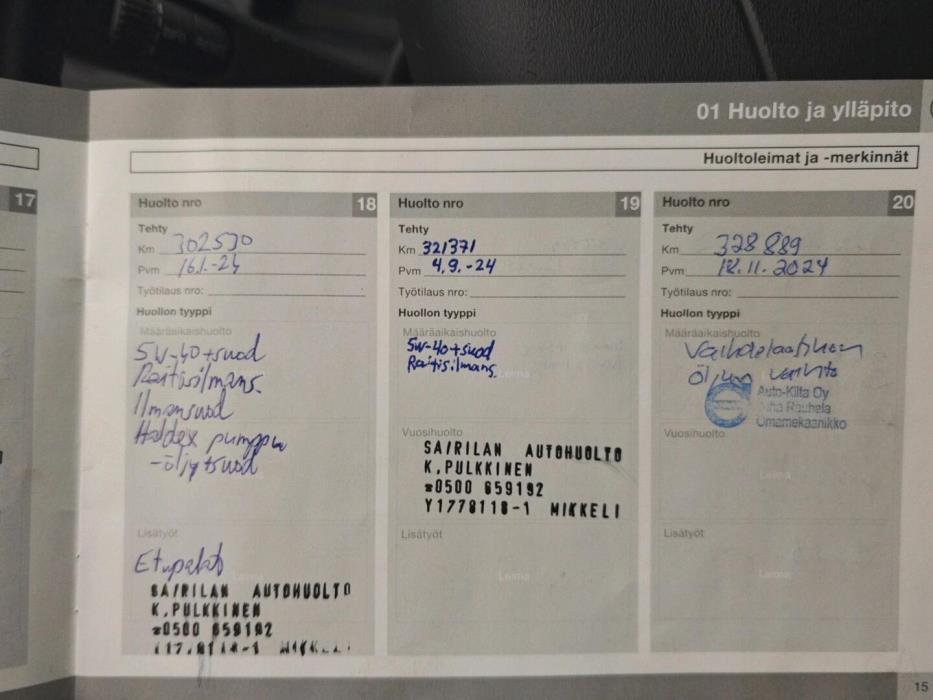 01 Huolto ja ylläpito
Huoltoleimat ja -merkinnät
17
Huolto nro 18
Tehty
Km 302530
Pvm 16.1.-24
Työtilaus nro:
Huollon tyyppi
Määräaikaishuolto
5W-40+suod
Raitisilmans.
Ilmansuod
Haldex pumppu
-öljy+suod
Leima
Lisätyöt
Etupalat
Leima
SAIRILAN AUTOHUOLTO
K.PULKKINEN
☎0500 659192
Huolto nro 19
Tehty
Km 321371
Pvm 4.9.-24
Työtilaus nro:
Huollon tyyppi
Määräaikaishuolto
5W-40+suod
Raitisilmans.
Leima
Vuosihuolto
SAIRILAN AUTOHUOLTO
K.PULKKINEN
☎0500 659192
Y1778118-1 MIKKELI
Lisätyöt
Leima
Huolto nro 20
Tehty
Km 328889
Pvm 12.11.2024
Työtilaus nro:
Huollon tyyppi
Määräaikaishuolto
Vaihdelaatikon
öljyn vaihto
Auto-Kilta Oy
Rauhela
Omamekaanikko
Vuosihuolto
Leima
Lisätyöt
Leima
15